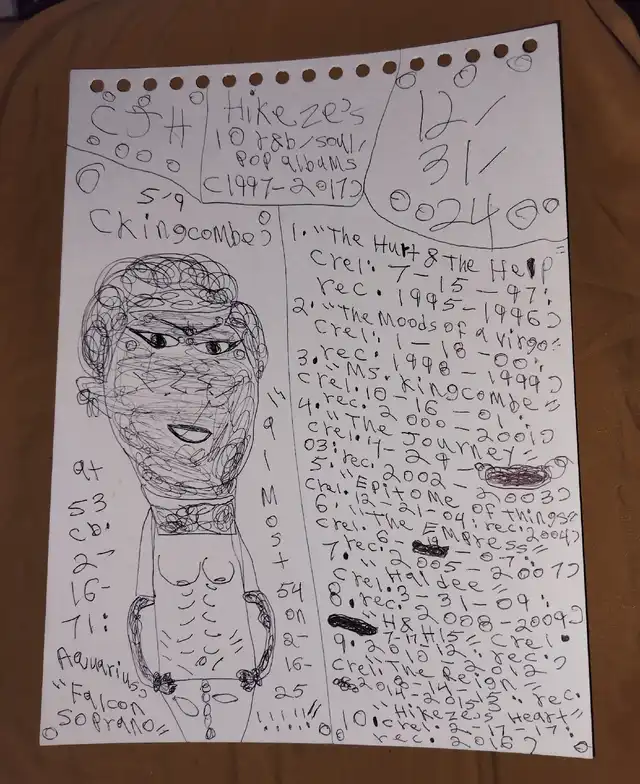 CJH
Hikeze's
10 r&b/soul/
pop albums
(1997-2017)
12/
31/
024
5'9
(Kingcombe)
at
53
(b.
2-
16-
71:
Aquarius)
"Falcon
Soprano"
"almost
54
on
2-
16-
25
!!!!!!"
1. "The Hurt & The Help"
(rel: 7-15-97:
rec. 1995-1996)
2. "The Moods of a Virgo"
(rel: 1-18-00:
rec. 1998-1999)
3. "Ms. Kingcombe"
(rel. 10-16-01:
rec. 2000-2001)
4. "The Journey"
(rel.
03: rec. 2002-2003)
5. "Epitome of Things"
(rel. 12-21-04: rec: 2004)
6. "The Empress"
(rel. 6- -07:
rec. 2005-2007)
7.
(rel. 3-31-09:
rec. 2008-2009)
8. "H&H15" (rel.
rec.
9. "The Reign"
(rel. rec.
10. "Hikeze's Heart"
(rel. 2-17-17:
rec. 2016)